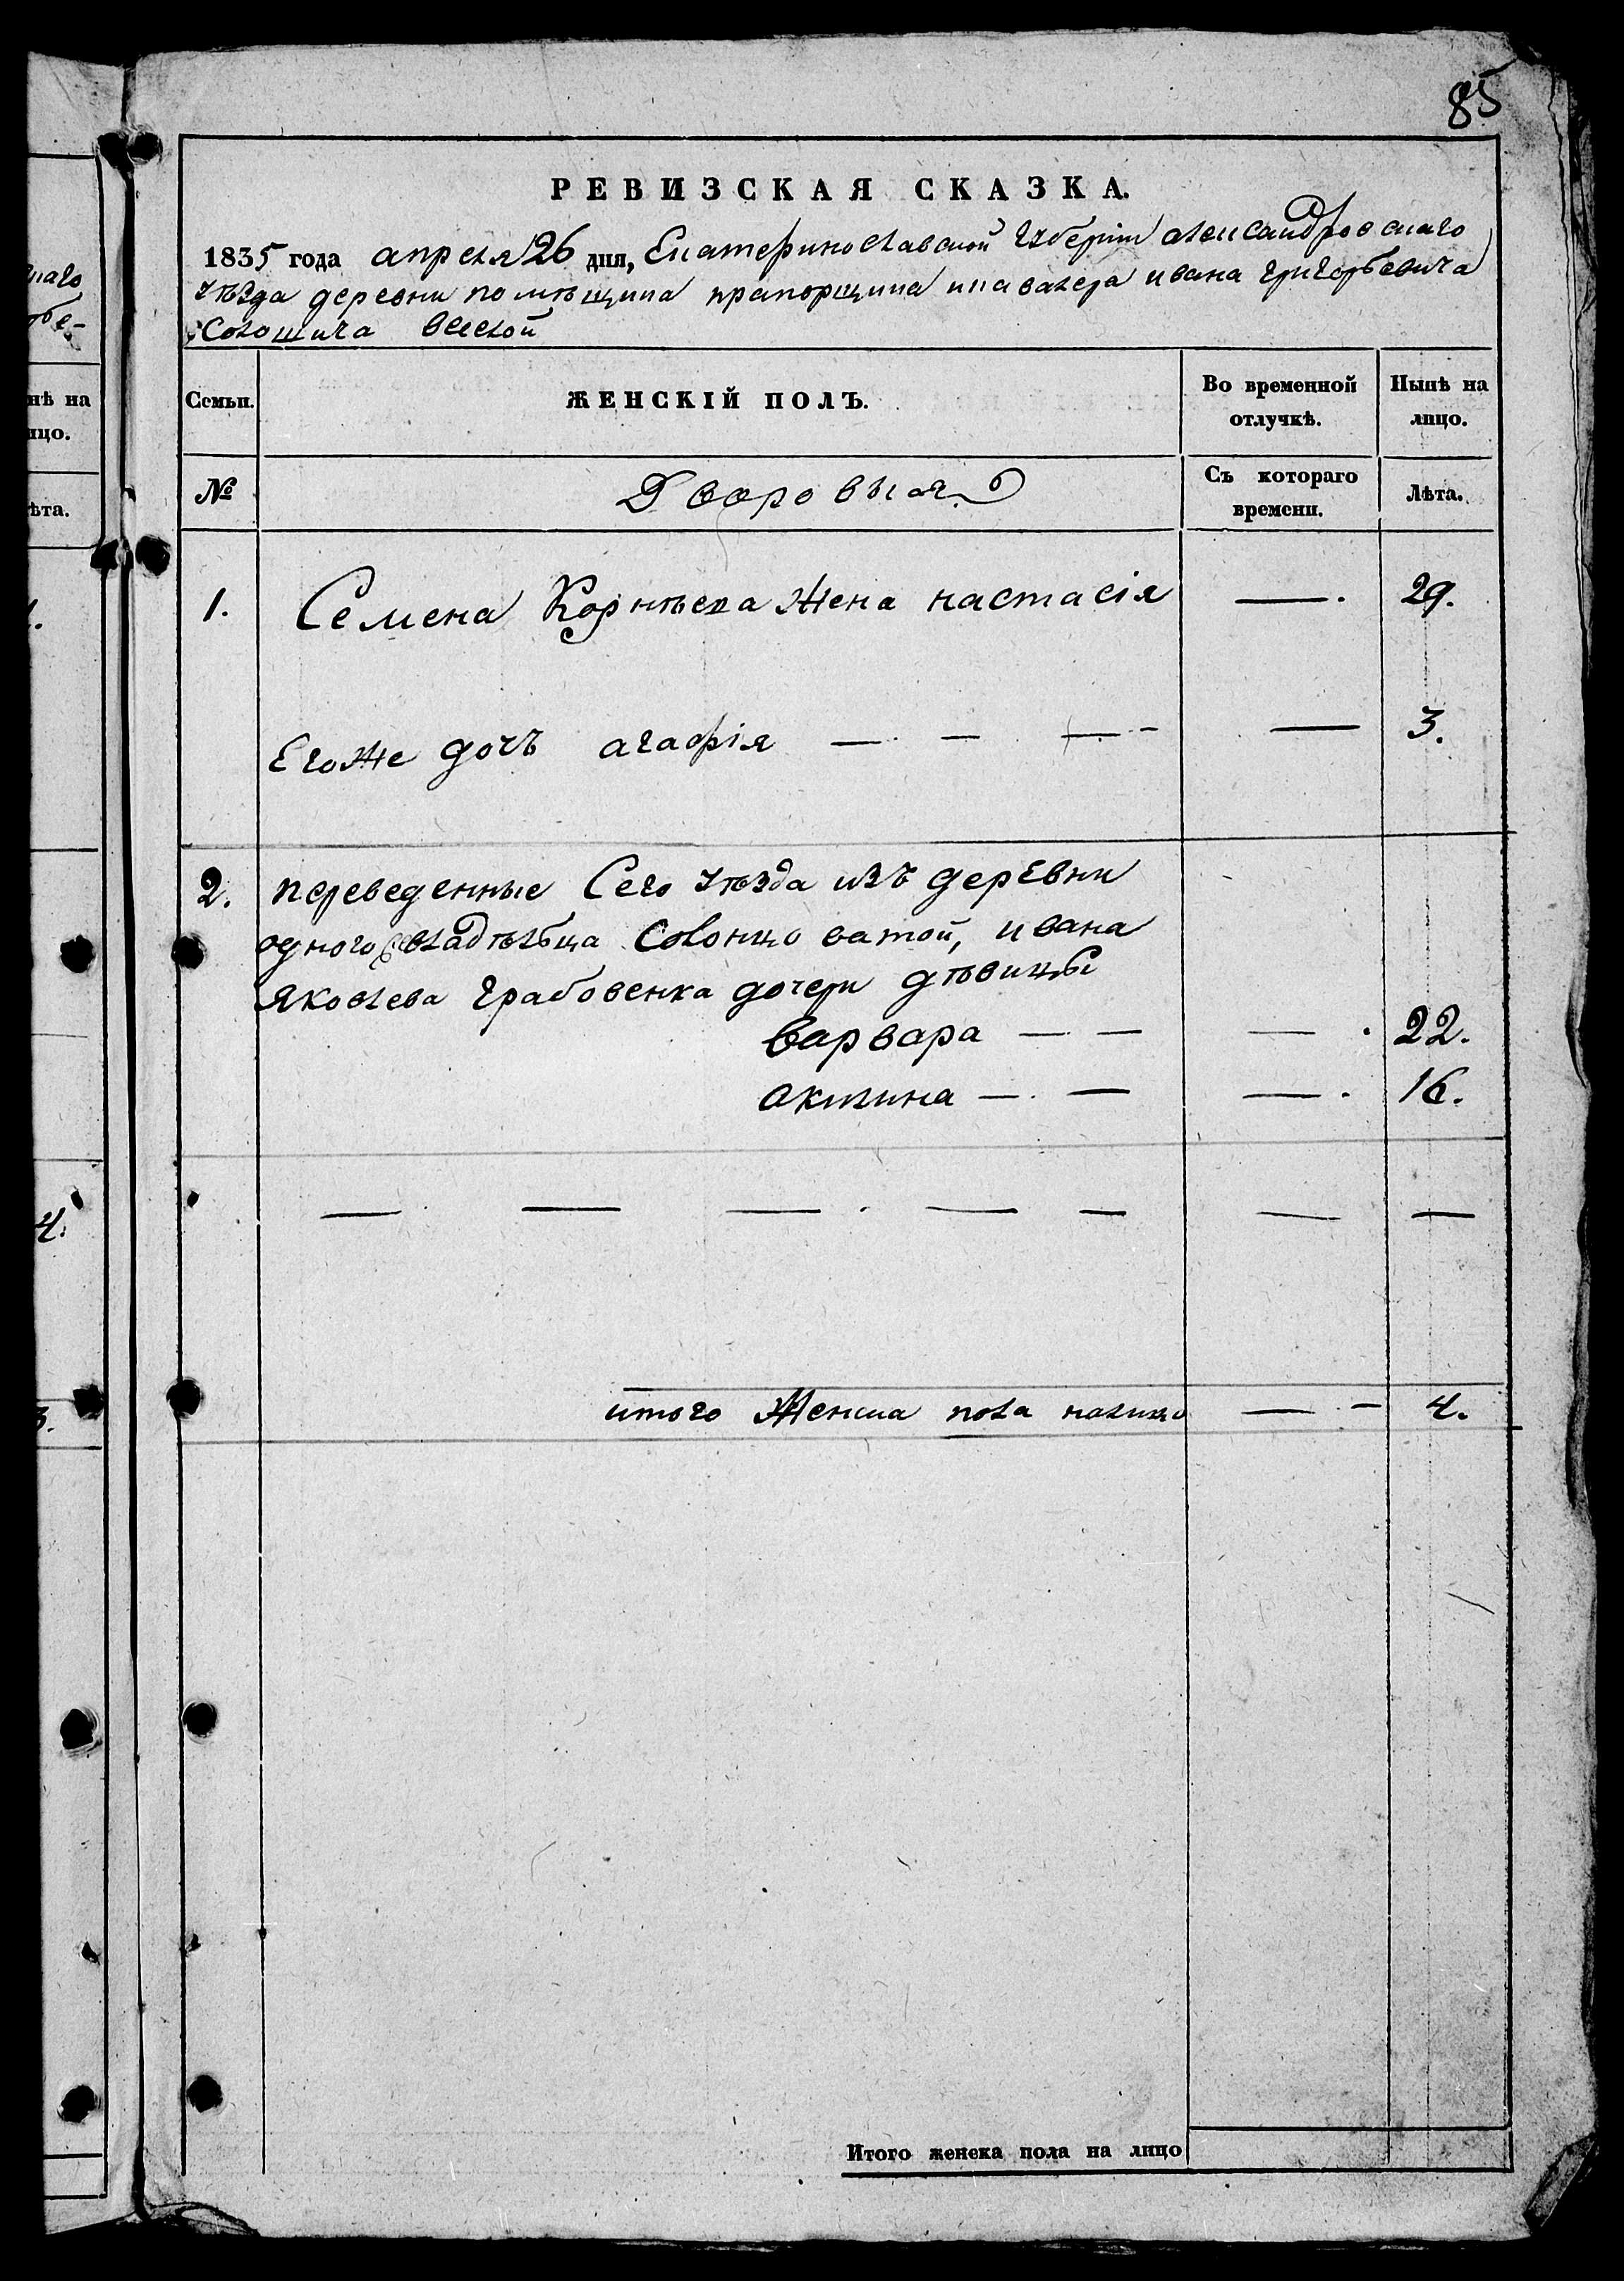 85
РЕВИЗСКАЯ СКАЗКА.
1835 года апреля 26 дня, Екатеринославской губерніи александровскаго
уѣзда деревни помѣщика прапорщика икавалера ивана григорьевича
веселой
Семьи.
ЖЕНСКІЙ ПОЛЪ.
Во временной отлучкѣ.
Нынѣ на лицо.
№
Дворовыя
Съ котораго времени.
Лѣта.
1. Семена Корнѣева жена настасія — 29.
Егоже дочь агафія — — — — 3.
2. переведенные Сего уѣзда изъ деревни
одного владѣльца Солонцоватой, ивана
Яковлева грабовенка дочери дѣвицы
варвара — — — 22.
акилина — — — 16.
— — — — — — —
итого Женска пола налицо — - 4.
Итого женска пола на лицо
наго
обе-
нѣ на
ицо.
ѣта.
4.
3.